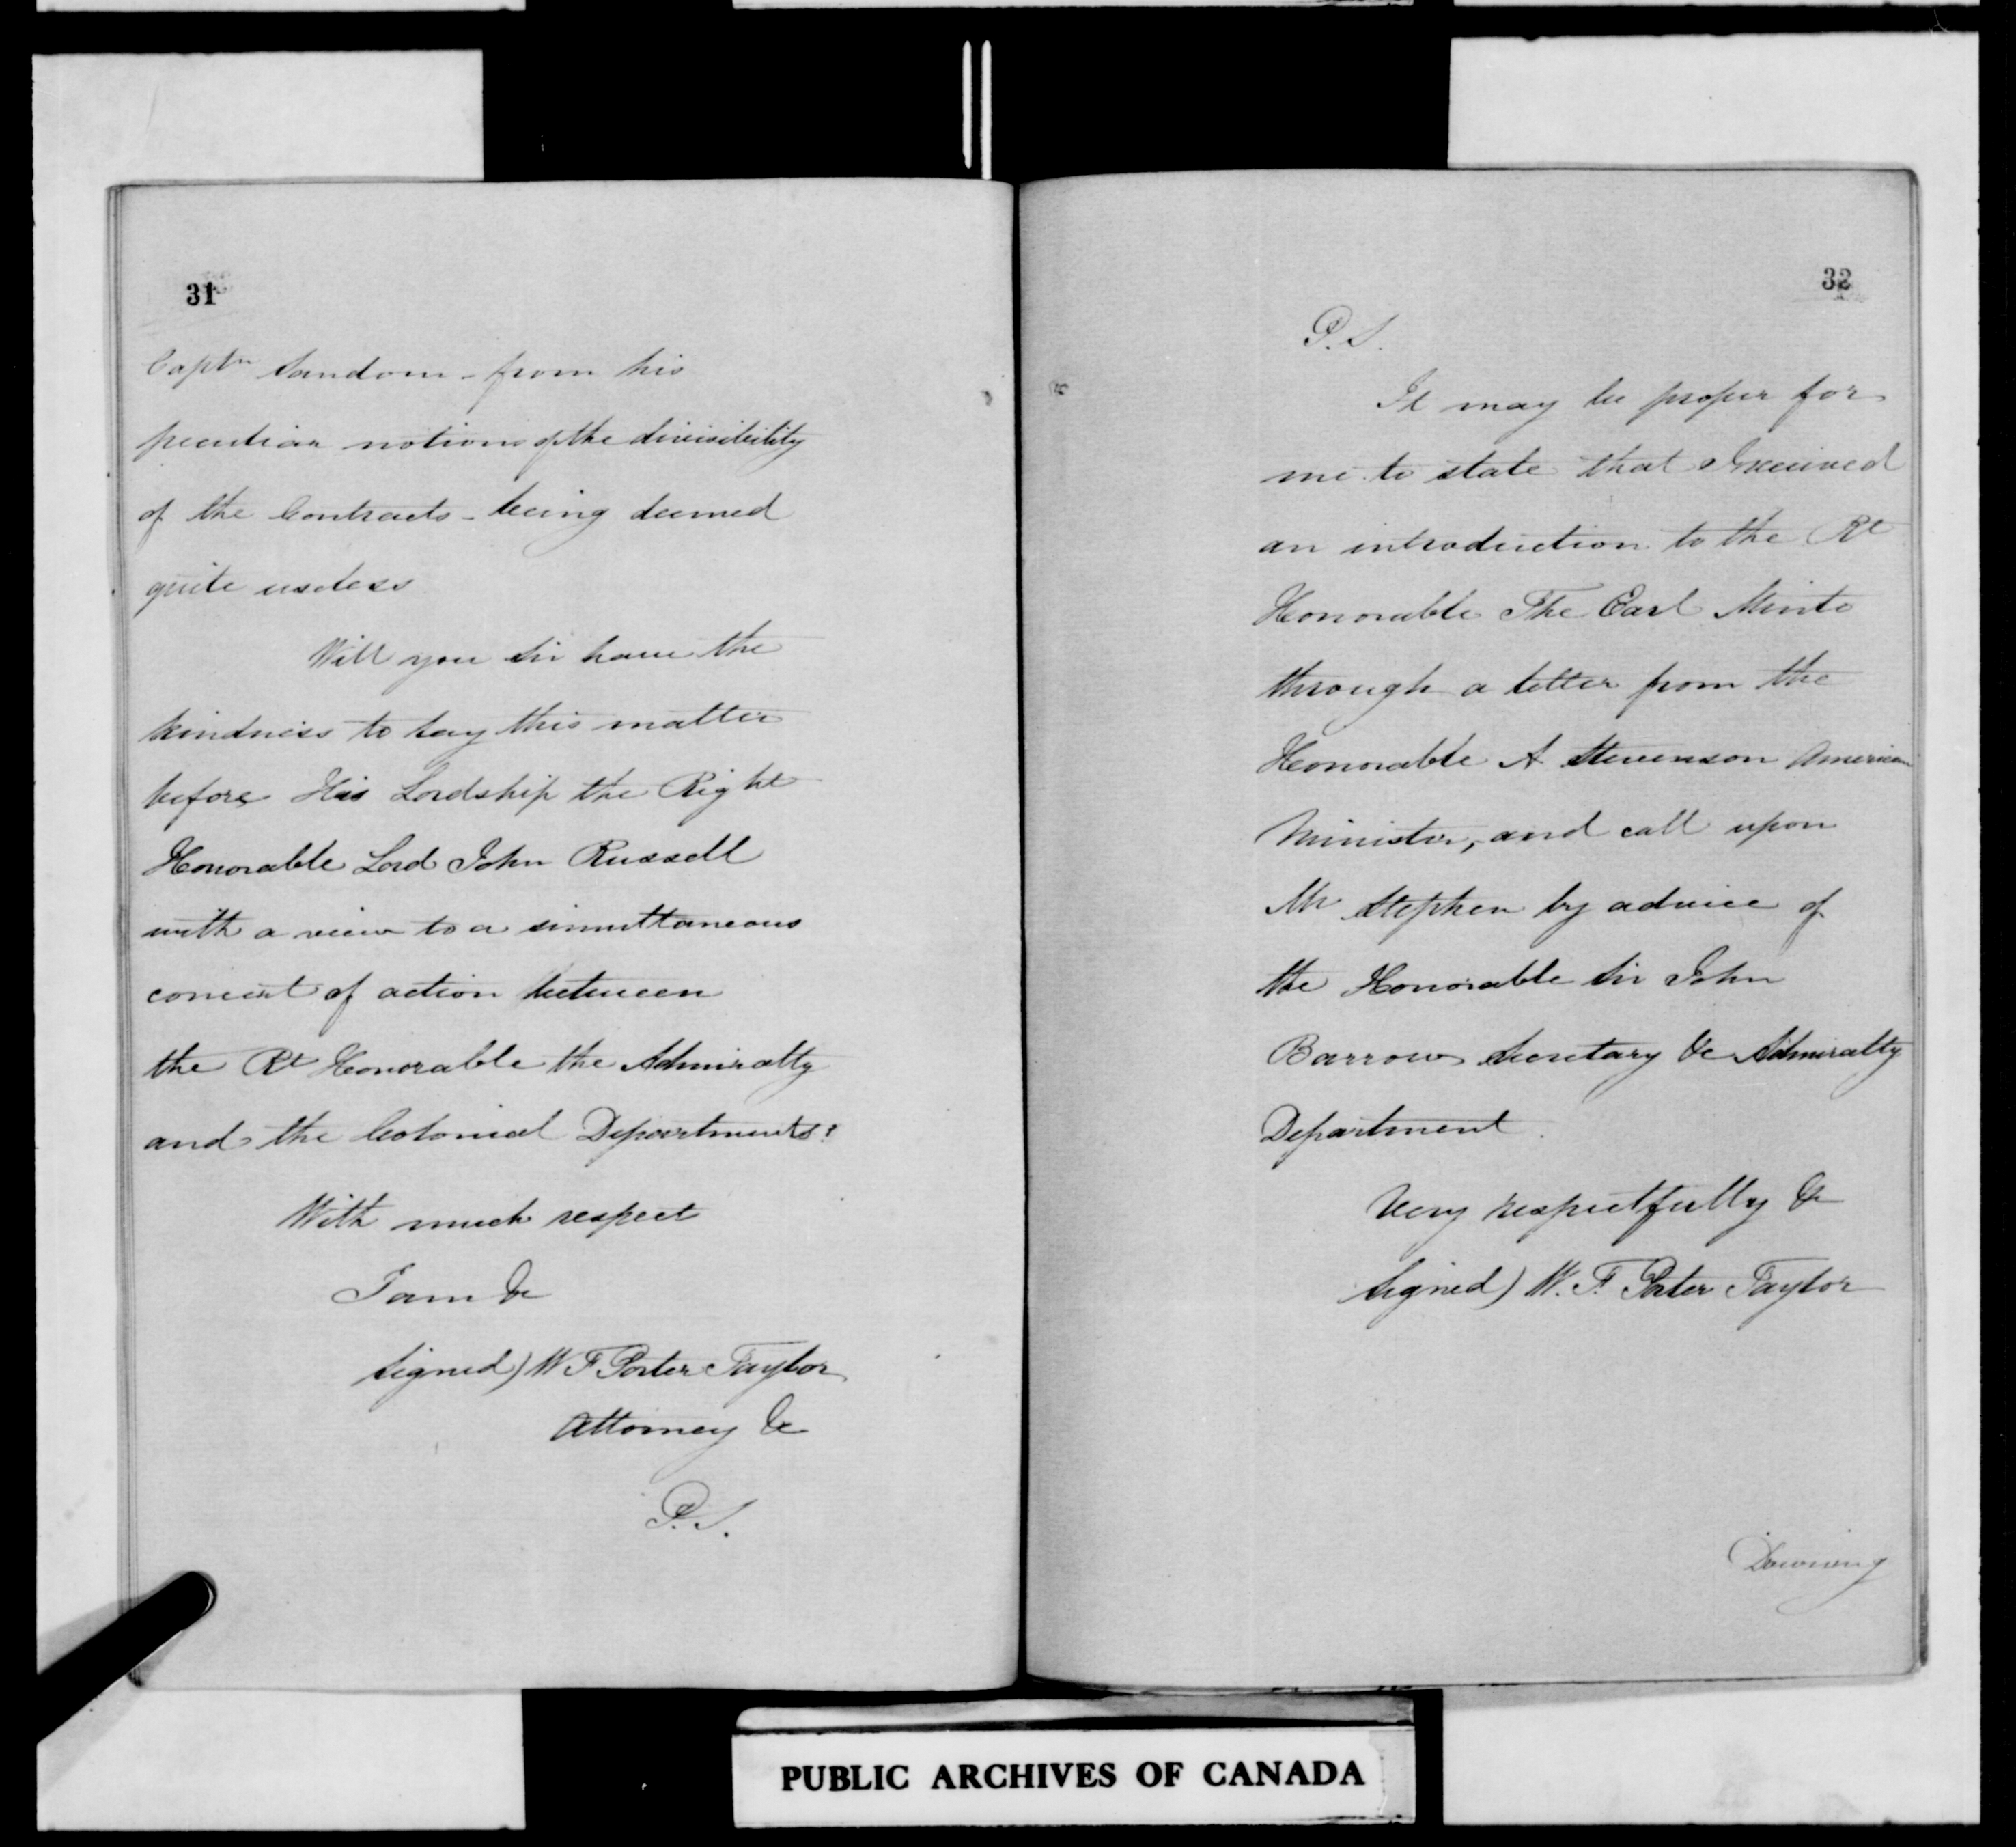 31
Captn Sandom - from his
peculiar notions of the divisibility
of the Contracts - being deemed
quite useless
Will you Sir have the
kindness to lay this matter
before His Lordship the Right
Honorable Lord John Russell
with a view to a simultaneous
concert of action between
the Rt Honorable the Admiralty
and the Colonial Departments?
With much respect
I am &c
Signed) W F Porter Taylor
Attorney &c
P.S.
32
P.S.
It may be proper for
me to state that I received
an introduction to the Rt
Honorable The Earl Minto
through a letter from the
Honorable A Stevenson American
Minister, and call upon
Mr Stephen by advice of
the Honorable Sir John
Barrow Secretary &c Admiralty
Department.
Very respectfully &c
Signed) W. F. Porter Taylor
Downing
PUBLIC ARCHIVES OF CANADA